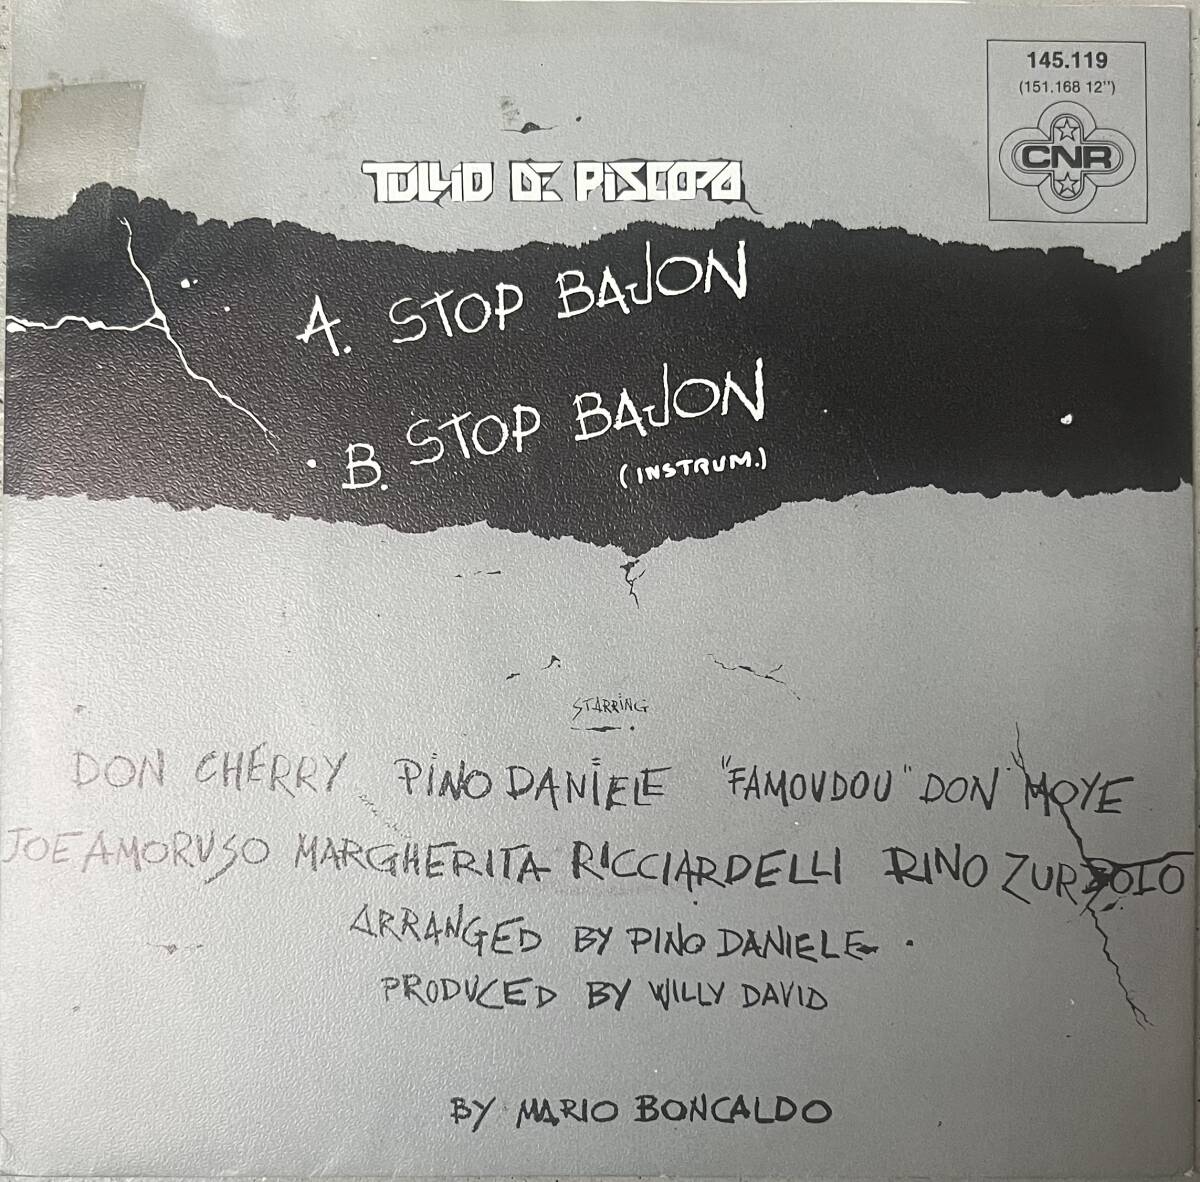 145.119
(151.168 12")
CNR
TULLIO DE PISCOPO
A. STOP BAJON
B. STOP BAJON
(INSTRUM.)
STARRING
DON CHERRY PINO DANIELE "FAMOUDOU" DON MOYE
JOE AMORUSO MARGHERITA RICCIARDELLI RINO ZURZOLO
ARRANGED BY PINO DANIELE
PRODUCED BY WILLY DAVID
BY MARIO BONCALDO